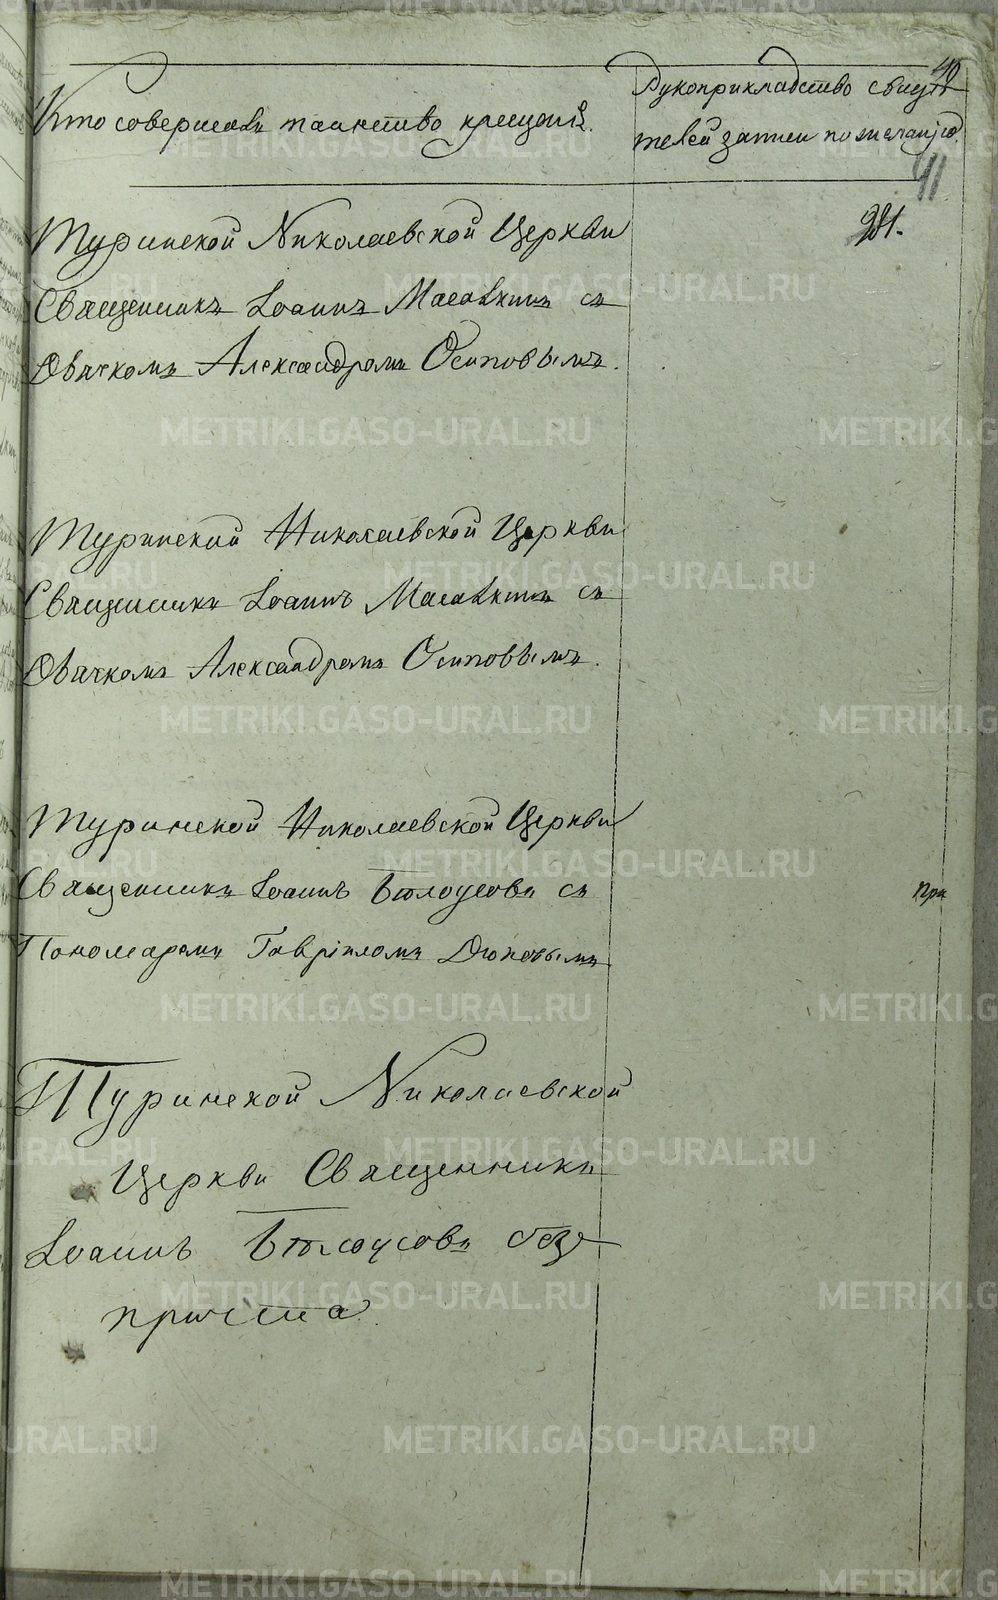 40
Кто совершалъ таинство крещенія.
Рукоприкладство свидѣ
телей записи по желанію.
41
281.
Туринской Николаевской Церкви
Священникъ Іоаннъ съ
Дьячкомъ Александромъ Осиповымъ.
Туринской Николаевской Церкви
Священникъ Іоаннъ съ
Дьячкомъ Александромъ Осиповымъ.
Туринской Николаевской Церкви
Священникъ Іоаннъ Бѣлоусовъ съ
При
Пономаремъ Гавріиломъ
Туринской Николаевской
Церкви Священникъ
Іоаннъ Бѣлоусовъ безъ
причта.
METRIKI.GASO-URAL.RU